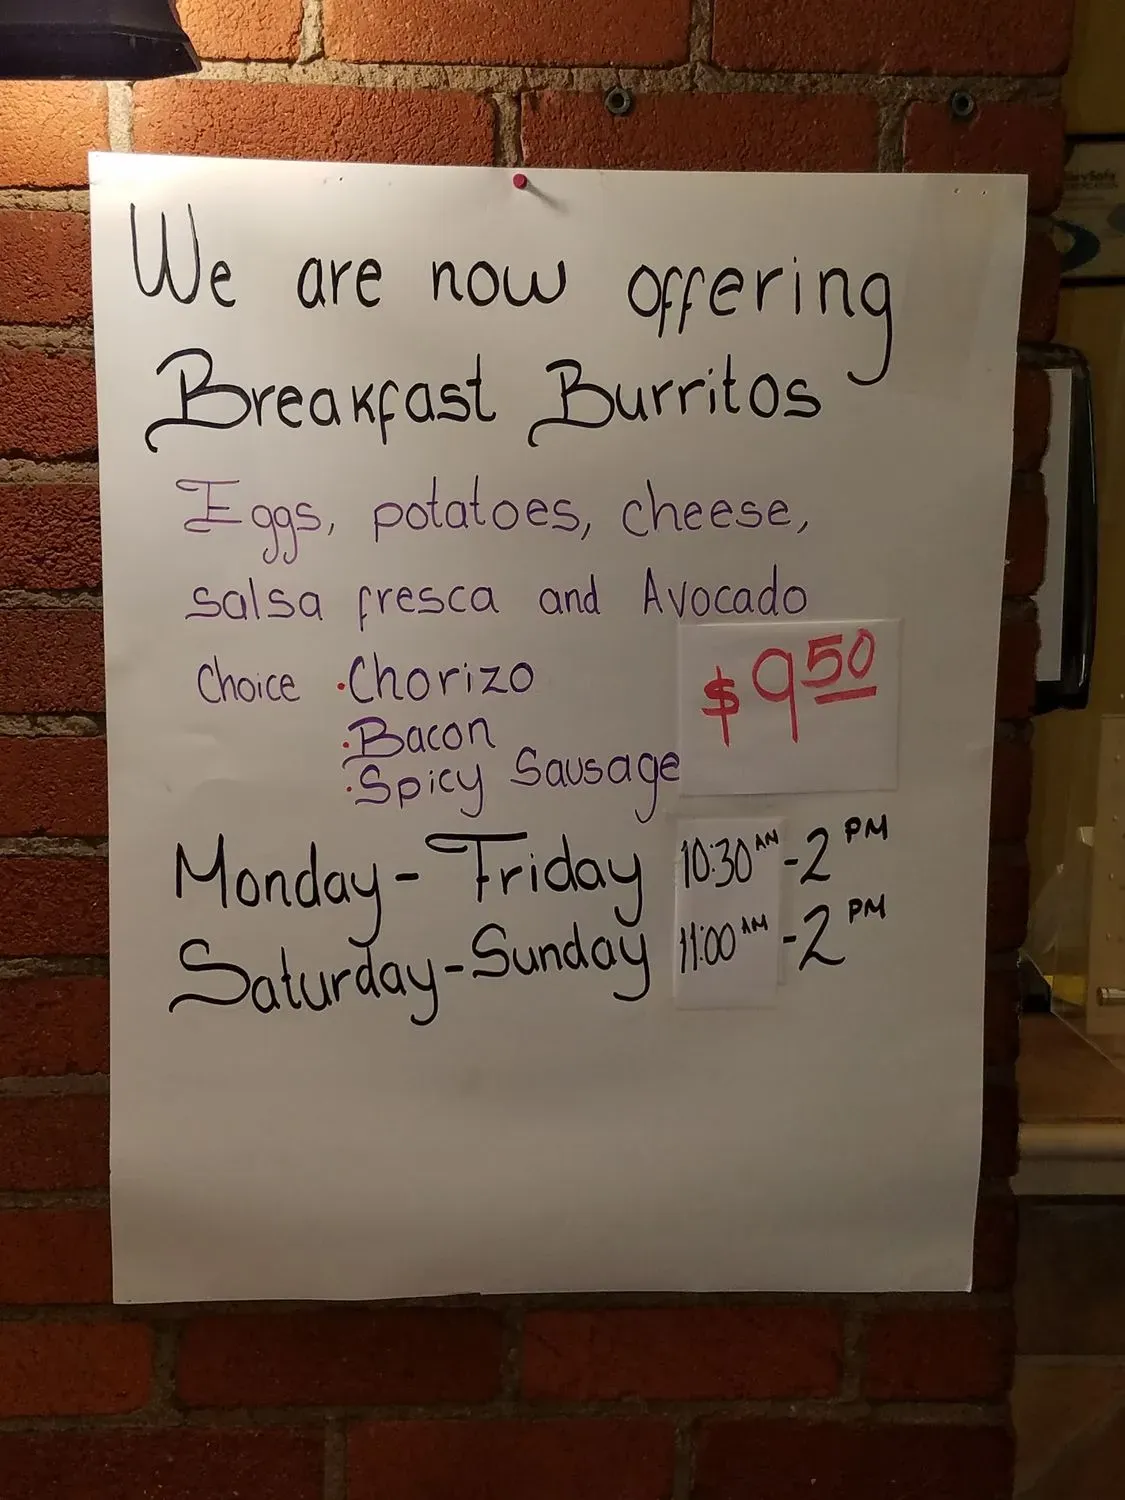 We are now offering
Breakfast Burritos
Eggs, potatoes, cheese,
salsa fresca and Avocado
Choice • Chorizo
• Bacon
• Spicy Sausage
$9.50
Monday - Friday 10:30 AM - 2 PM
Saturday - Sunday 11:00 AM - 2 PM